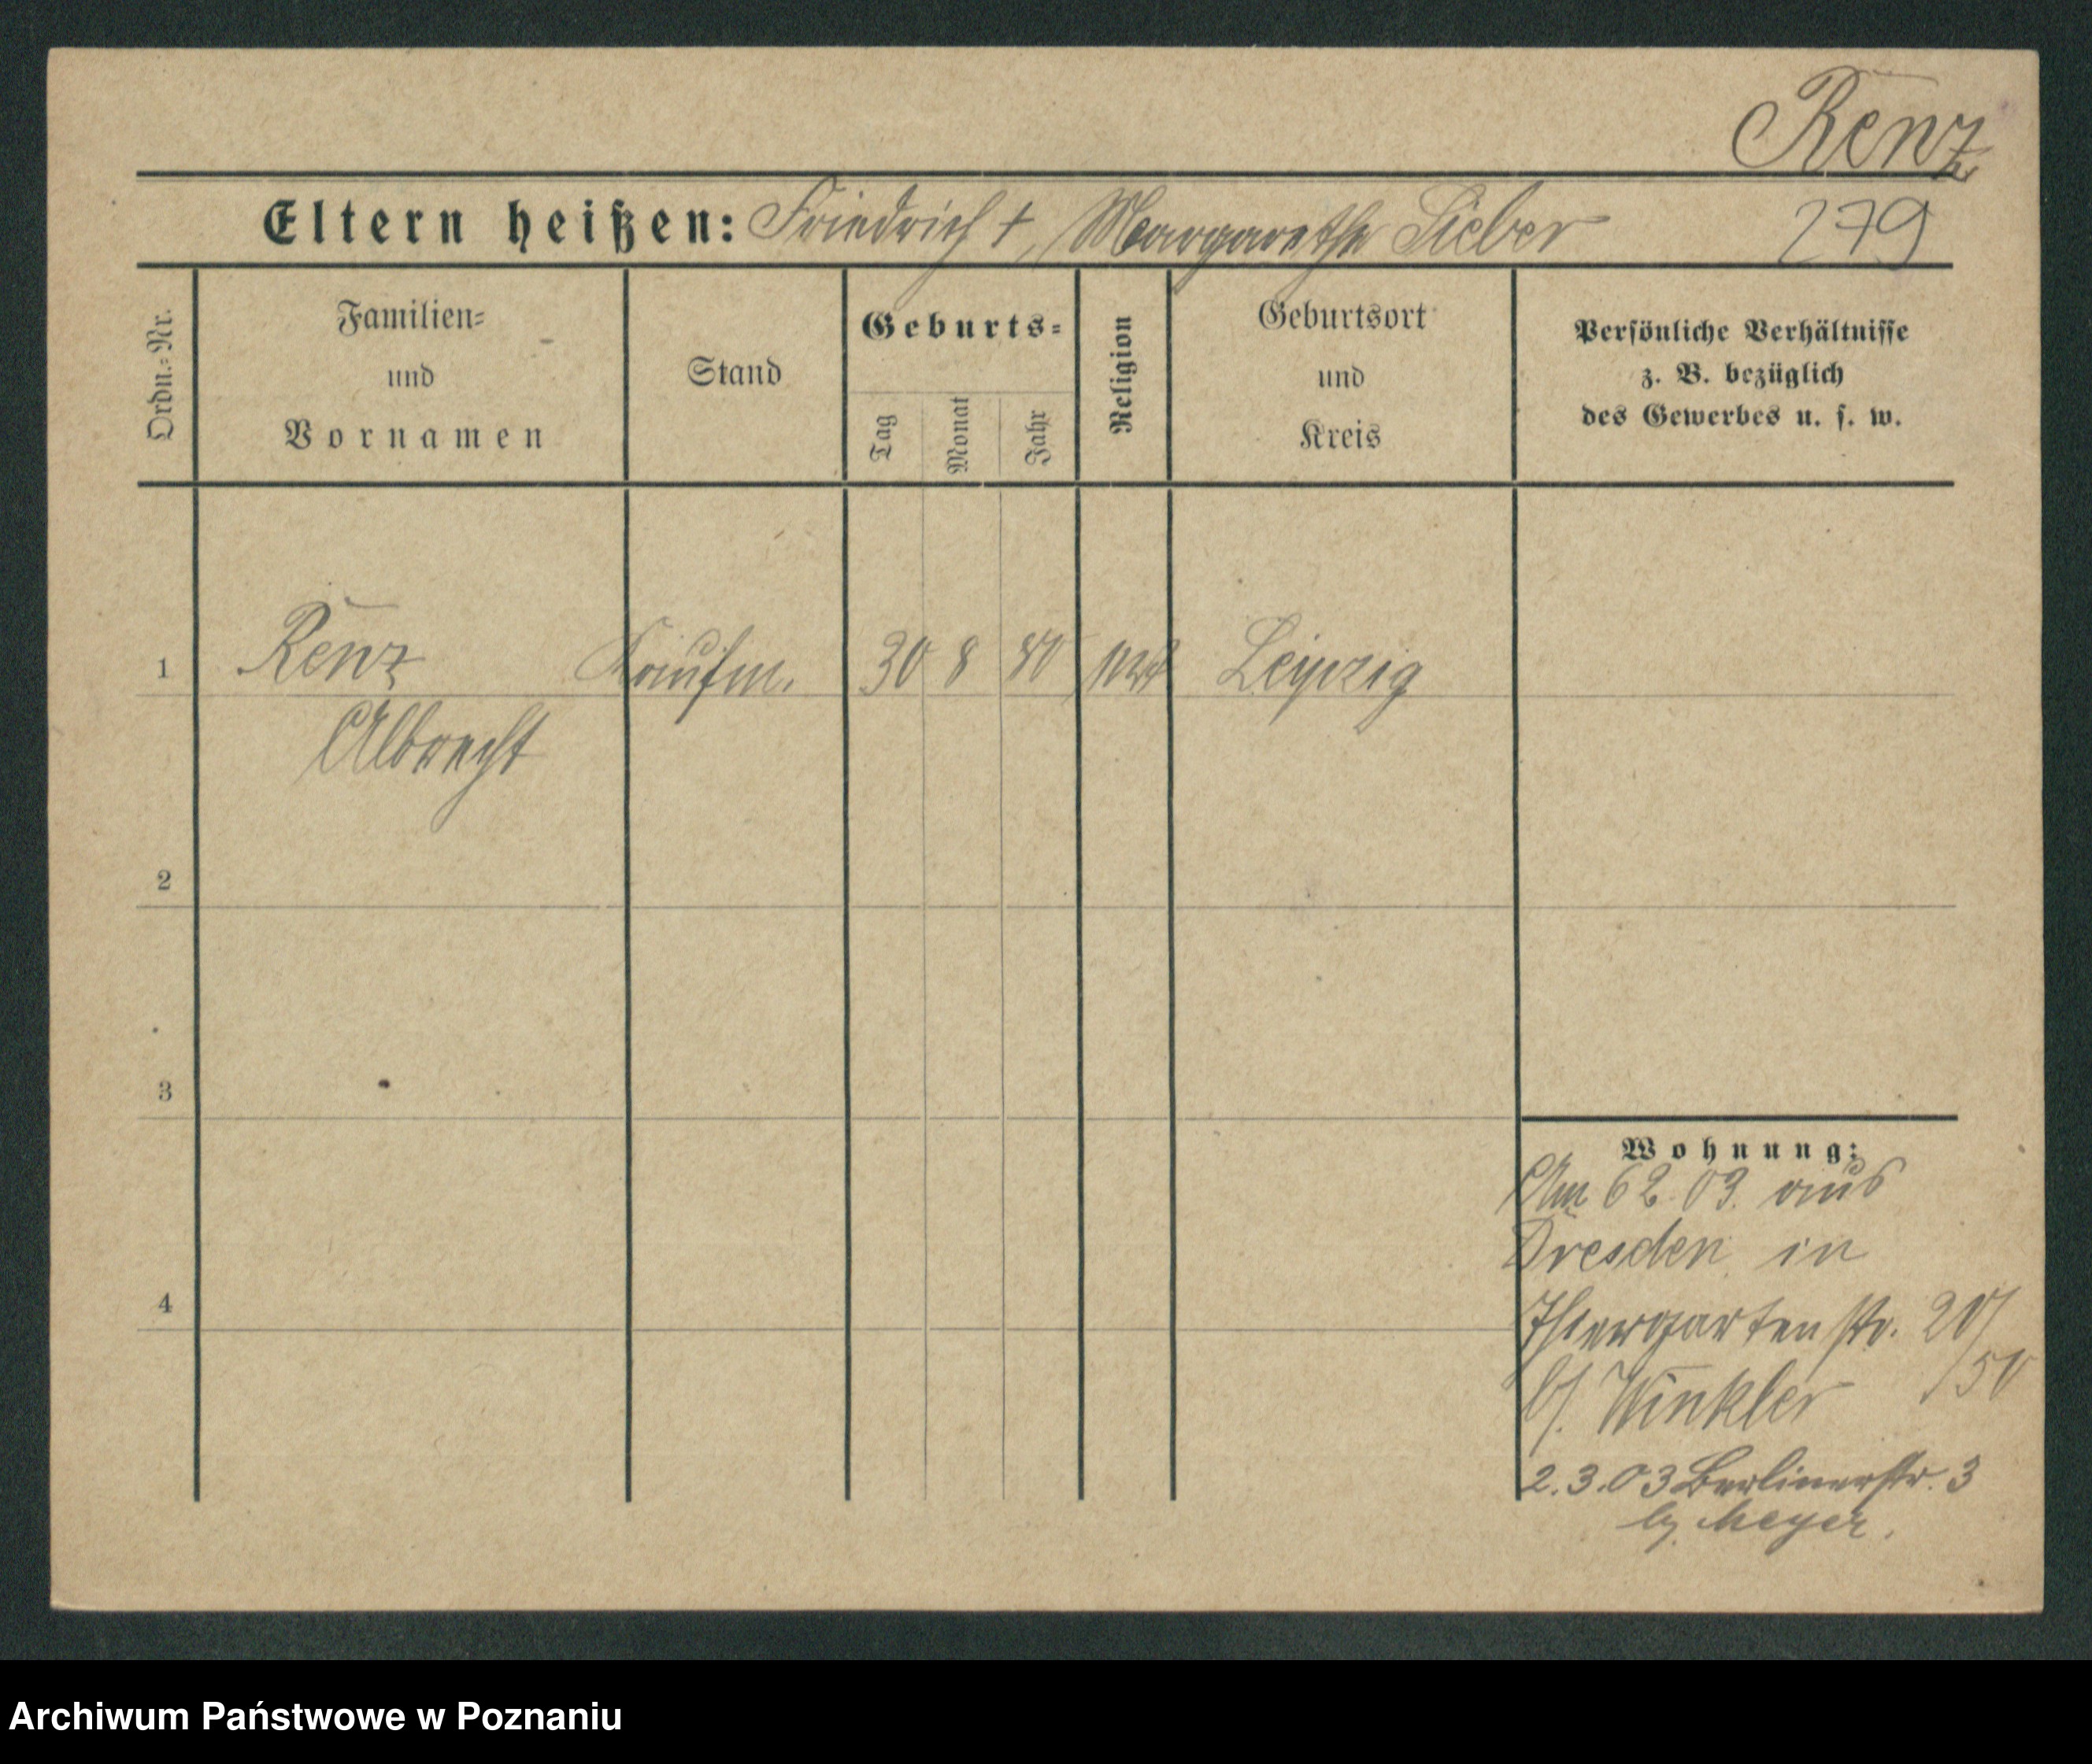 Renz
Eltern heißen: Friedrich †, Margarethe Sieber 279
Ordn.-Nr.
Familien-
und
Vornamen
Stand
Geburts-
Tag
Monat
Jahr
Religion
Geburtsort
und
Kreis
Persönliche Verhältnisse
z. B. bezüglich
des Gewerbes u. s. w.
1 Renz Kaufm. 30 8 80 Leipzig
Albrecht
2
3
4
Wohnung:
Am 6 2. 03. aus
Dresden in
Thiergartenstr. 20/
b/. Winkler /50
2.3.03 Berlinerstr. 3
b/. Meyer.
Archiwum Państwowe w Poznaniu